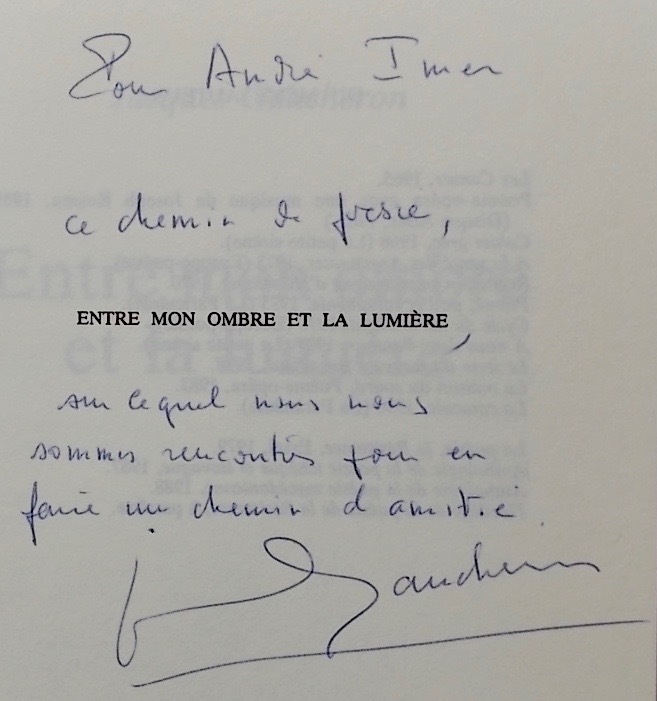 Pour André Imer
ce chemin de poésie,
ENTRE MON OMBRE ET LA LUMIÈRE,
sur lequel nous nous
sommes rencontrés pour en
faire un chemin d'amitié
Gaucheron